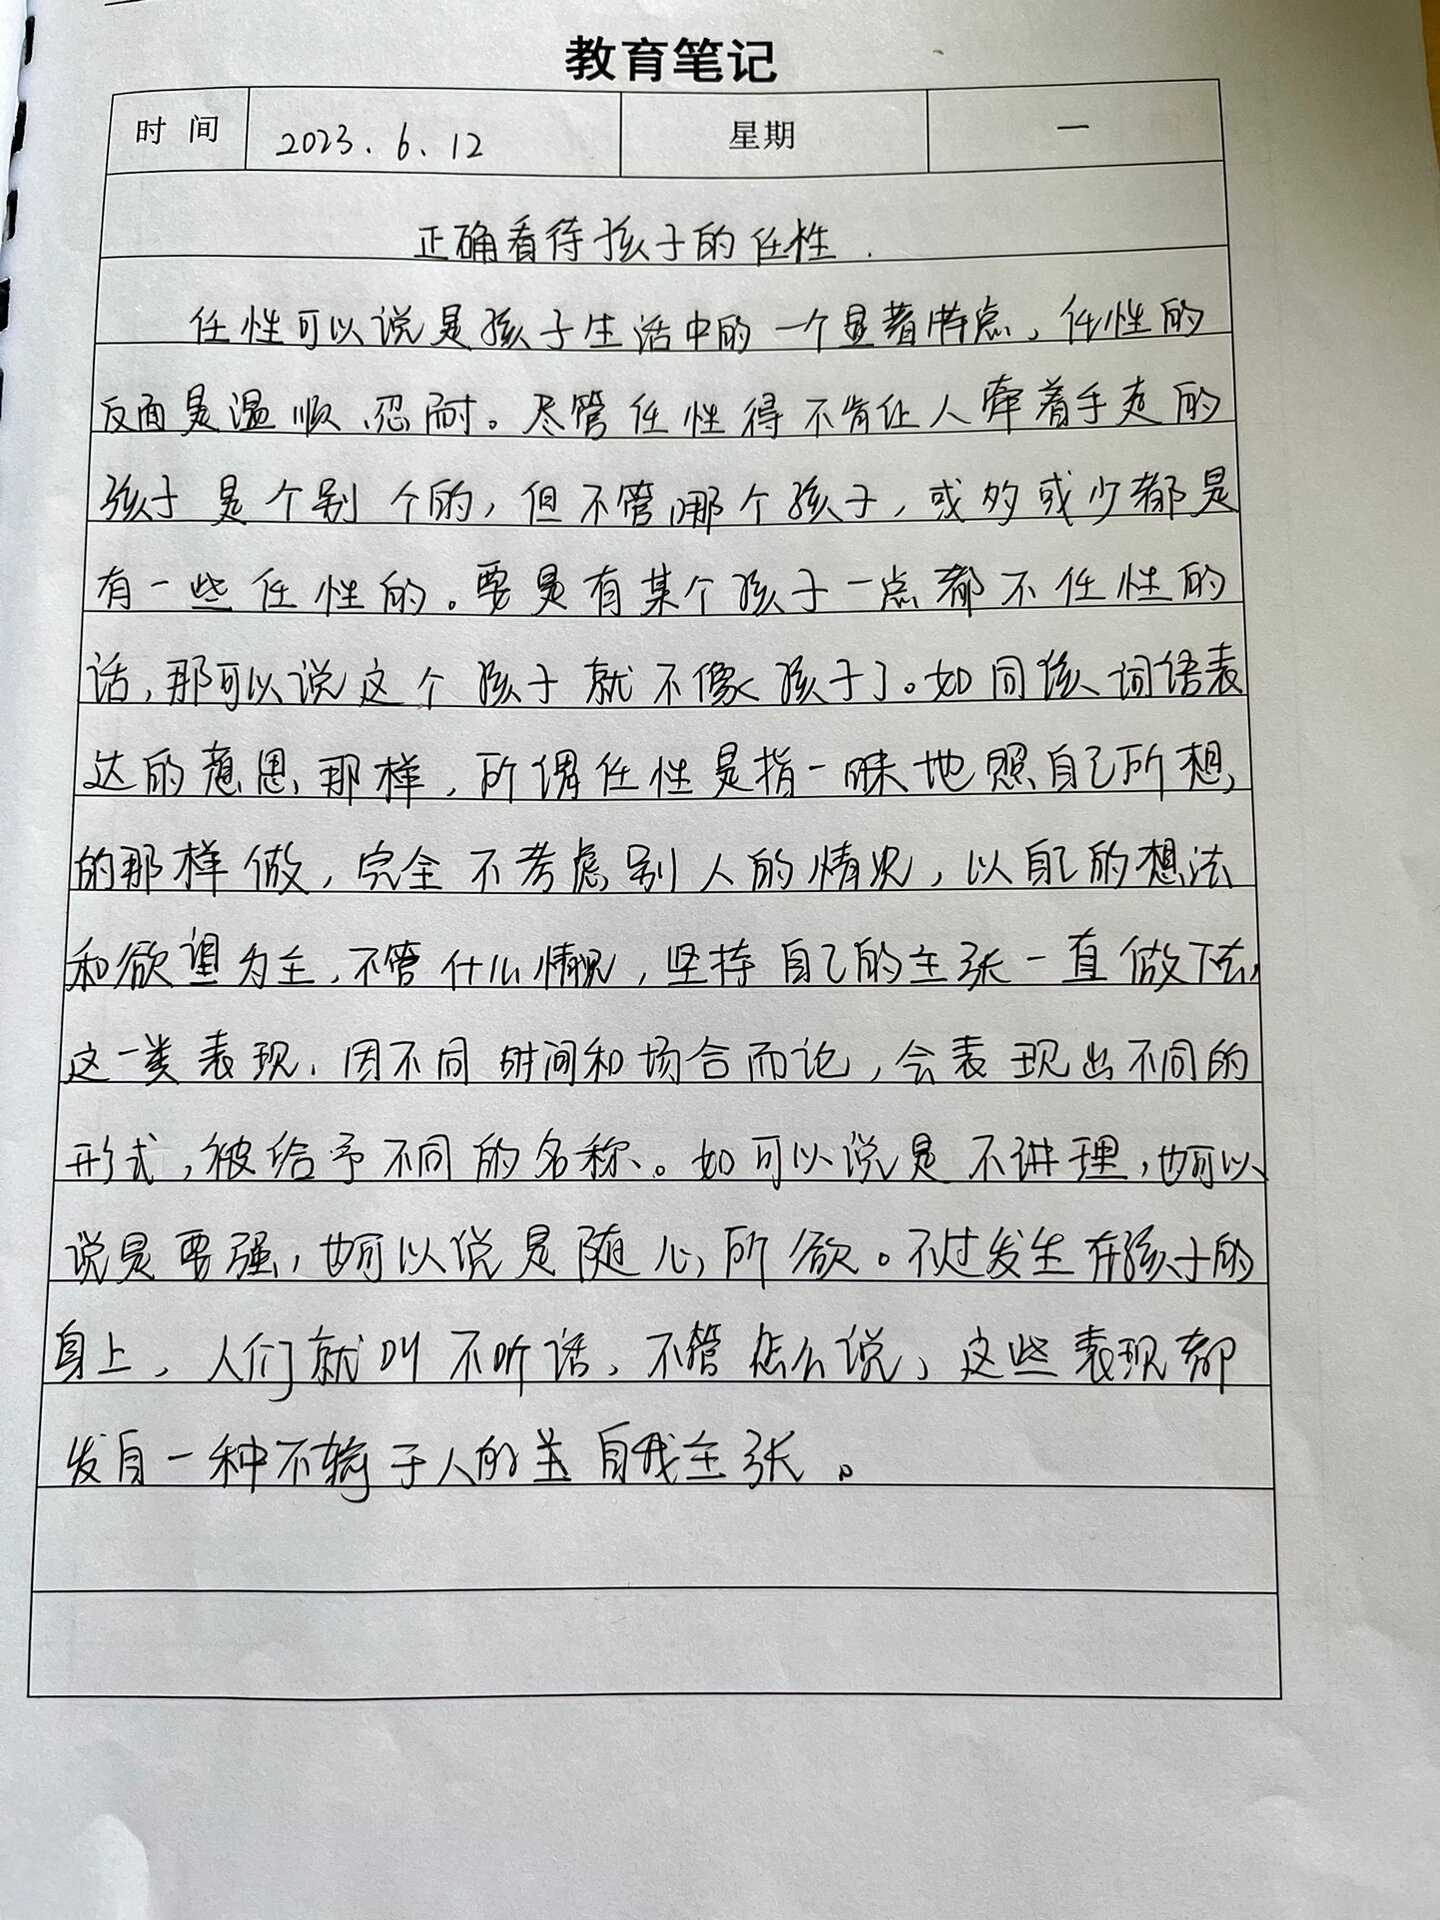 教育笔记
时间 2023.6.12 星期 一
正确看待孩子的任性.
任性可以说是孩子生活中的一个显著特点,任性的
反面是温顺、忍耐。尽管任性得不肯让人牵着手走的
孩子是个别个的,但不管哪个孩子,或多或少都是
有一些任性的。要是有某个孩子一点都不任性的
话,那可以说这个孩子就不像孩子了。如同该词语表
达的意思那样,所谓任性是指一味地照自己所想,
的那样做,完全不考虑别人的情况,以自己的想法
和欲望为主,不管什么情况,坚持自己的主张一直做下去,
这一类表现,因不同时间和场合而论,会表现出不同的
形式,被给予不同的名称、。如可以说是不讲理,也可以
说是要强,也可以说是随心所欲。不过发生在孩子的
身上,人们就叫不听话,不管怎么说,这些表现都
发自一种不输于人的 自我主张。